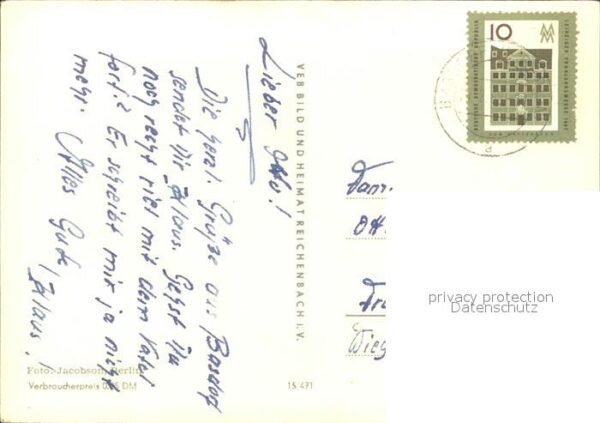 Lieber Otto!
Die herzl. Grüße aus Basdorf
sendet Dir Klaus. Gehst Du
noch recht viel mit dem Kater
fort? Er schreibt mir ja nicht
mehr. Alles Gute,
Klaus!
VEB BILD UND HEIMAT REICHENBACH I. V.
Foto: Jacobsohn, Berlin
Verbraucherpreis DM
15 471
10
DEUTSCHE DEMOKRATISCHE REPUBLIK
LEIPZIGER FRÜHJAHRSMESSE 1962
Fam.
Ott
privacy protection
Datenschutz